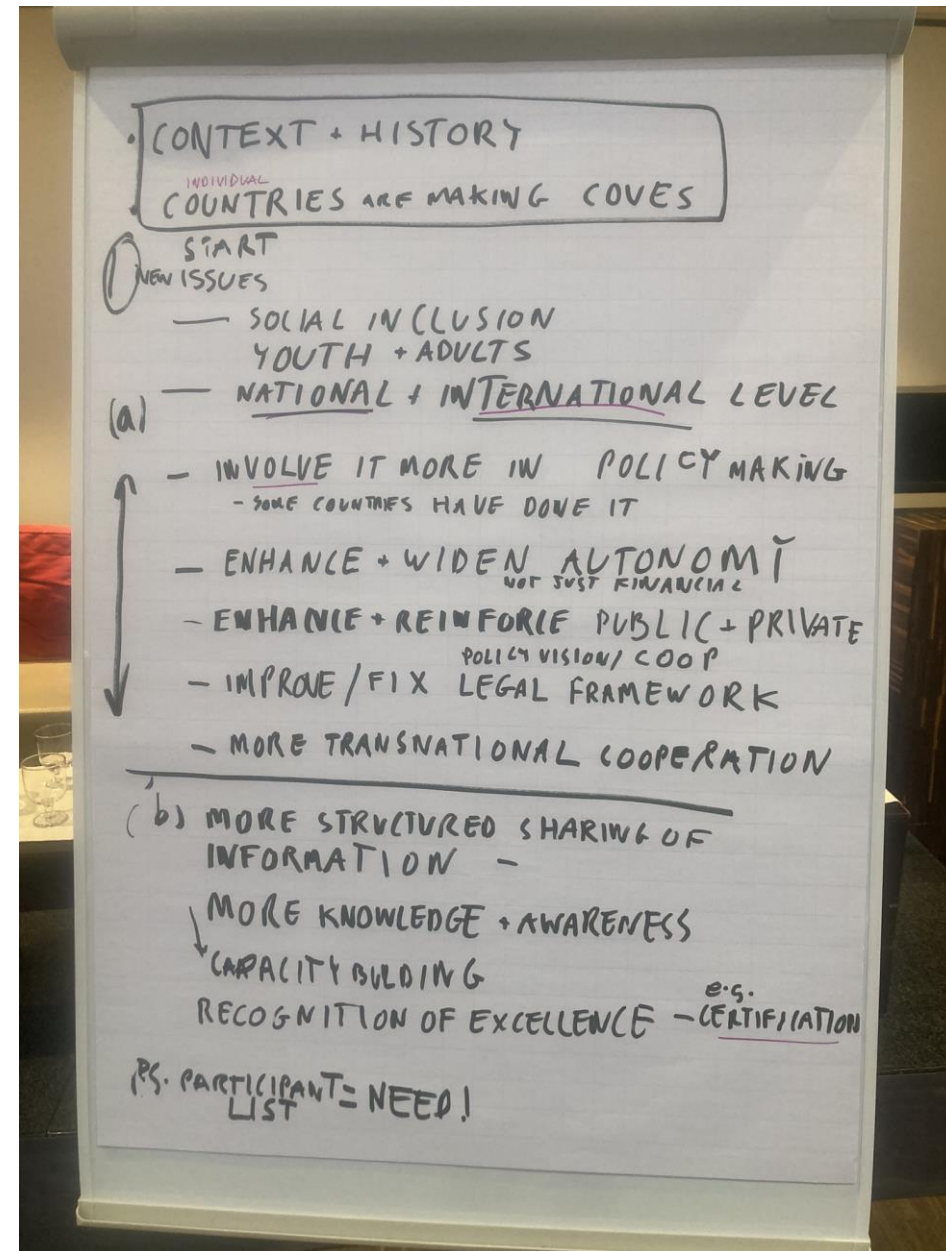 • CONTEXT + HISTORY
INDIVIDUAL
• COUNTRIES ARE MAKING COVES
START
NEW ISSUES
— SOCIAL INCLUSION
YOUTH + ADULTS
— NATIONAL + INTERNATIONAL LEVEL
(a)
- INVOLVE IT MORE IN POLICY MAKING
- SOME COUNTRIES HAVE DONE IT
- ENHANCE + WIDEN AUTONOMY
NOT JUST FINANCIAL
- ENHANCE + REINFORCE PUBLIC + PRIVATE
POLICY VISION / COOP
- IMPROVE / FIX LEGAL FRAMEWORK
- MORE TRANSNATIONAL COOPERATION
(b) MORE STRUCTURED SHARING OF
INFORMATION -
MORE KNOWLEDGE + AWARENESS
CAPACITY BULDING
e.g.
RECOGNITION OF EXCELLENCE - CERTIFICATION
PS. PARTICIPANT = NEED!
LIST